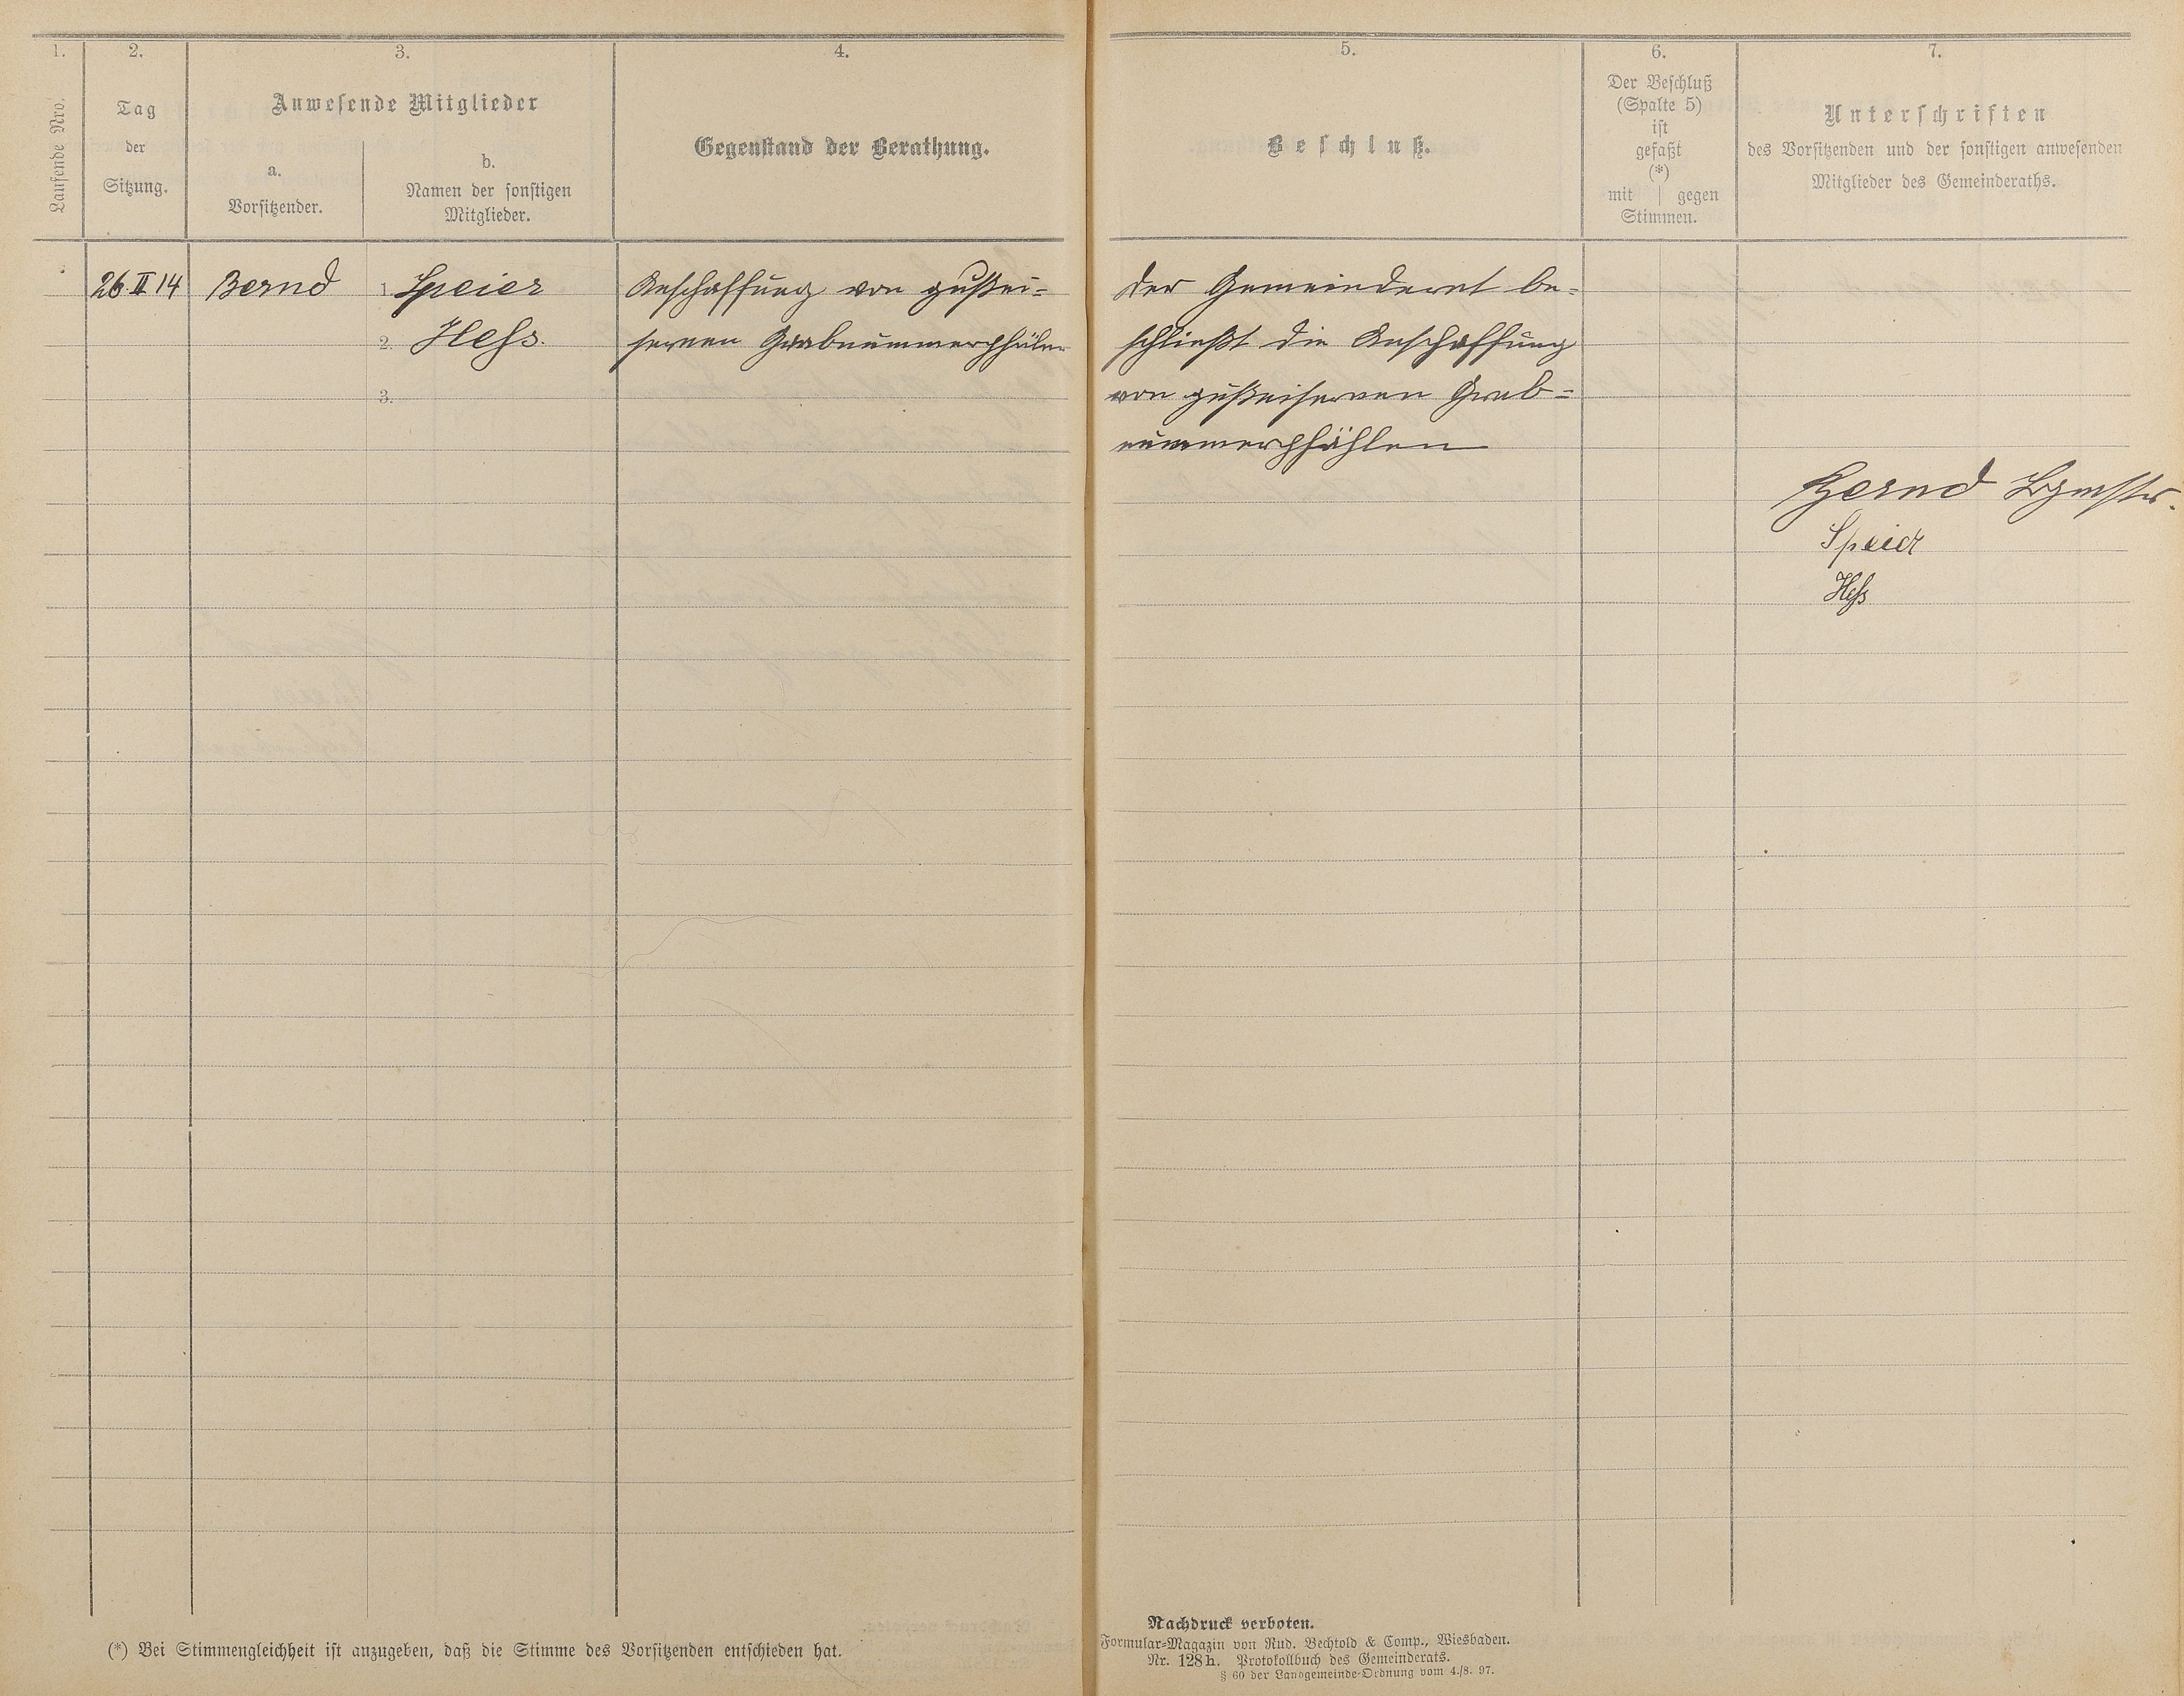 1.
2.
3.
4.
Laufende Nro.
Tag
der
Sitzung.
Anwesende Mitglieder
a.
Vorsitzender.
b.
Namen der sonstigen
Mitglieder.
Gegenstand der Berathung.
26. II 14
Bernd
1. Speier
2. Hess.
3.
Anschaffung von gußei-
sernen Grabnummerpfählen
(*) Bei Stimmengleichheit ist anzugeben, daß die Stimme des Vorsitzenden entschieden hat.
5.
6.
7.
Beschluß.
Der Beschluß
(Spalte 5)
ist
gefaßt
(*)
mit | gegen
Stimmen.
Unterschriften
des Vorsitzenden und der sonstigen anwesenden
Mitglieder des Gemeinderaths.
Der Gemeinderat be-
schließt die Anschaffung
von gußeisernen Grab-
nummerpfählen
Bernd Bgmstr.
Speier
Heß
Nachdruck verboten.
Formular-Magazin von Rud. Bechtold & Comp., Wiesbaden.
Nr. 128 h. Protokollbuch des Gemeinderats.
§ 60 der Landgemeinde-Ordnung vom 4./8. 97.